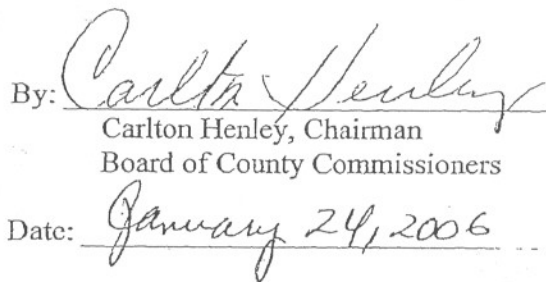 By: Carlton Henley
Carlton Henley, Chairman
Board of County Commissioners
Date: January 24, 2006